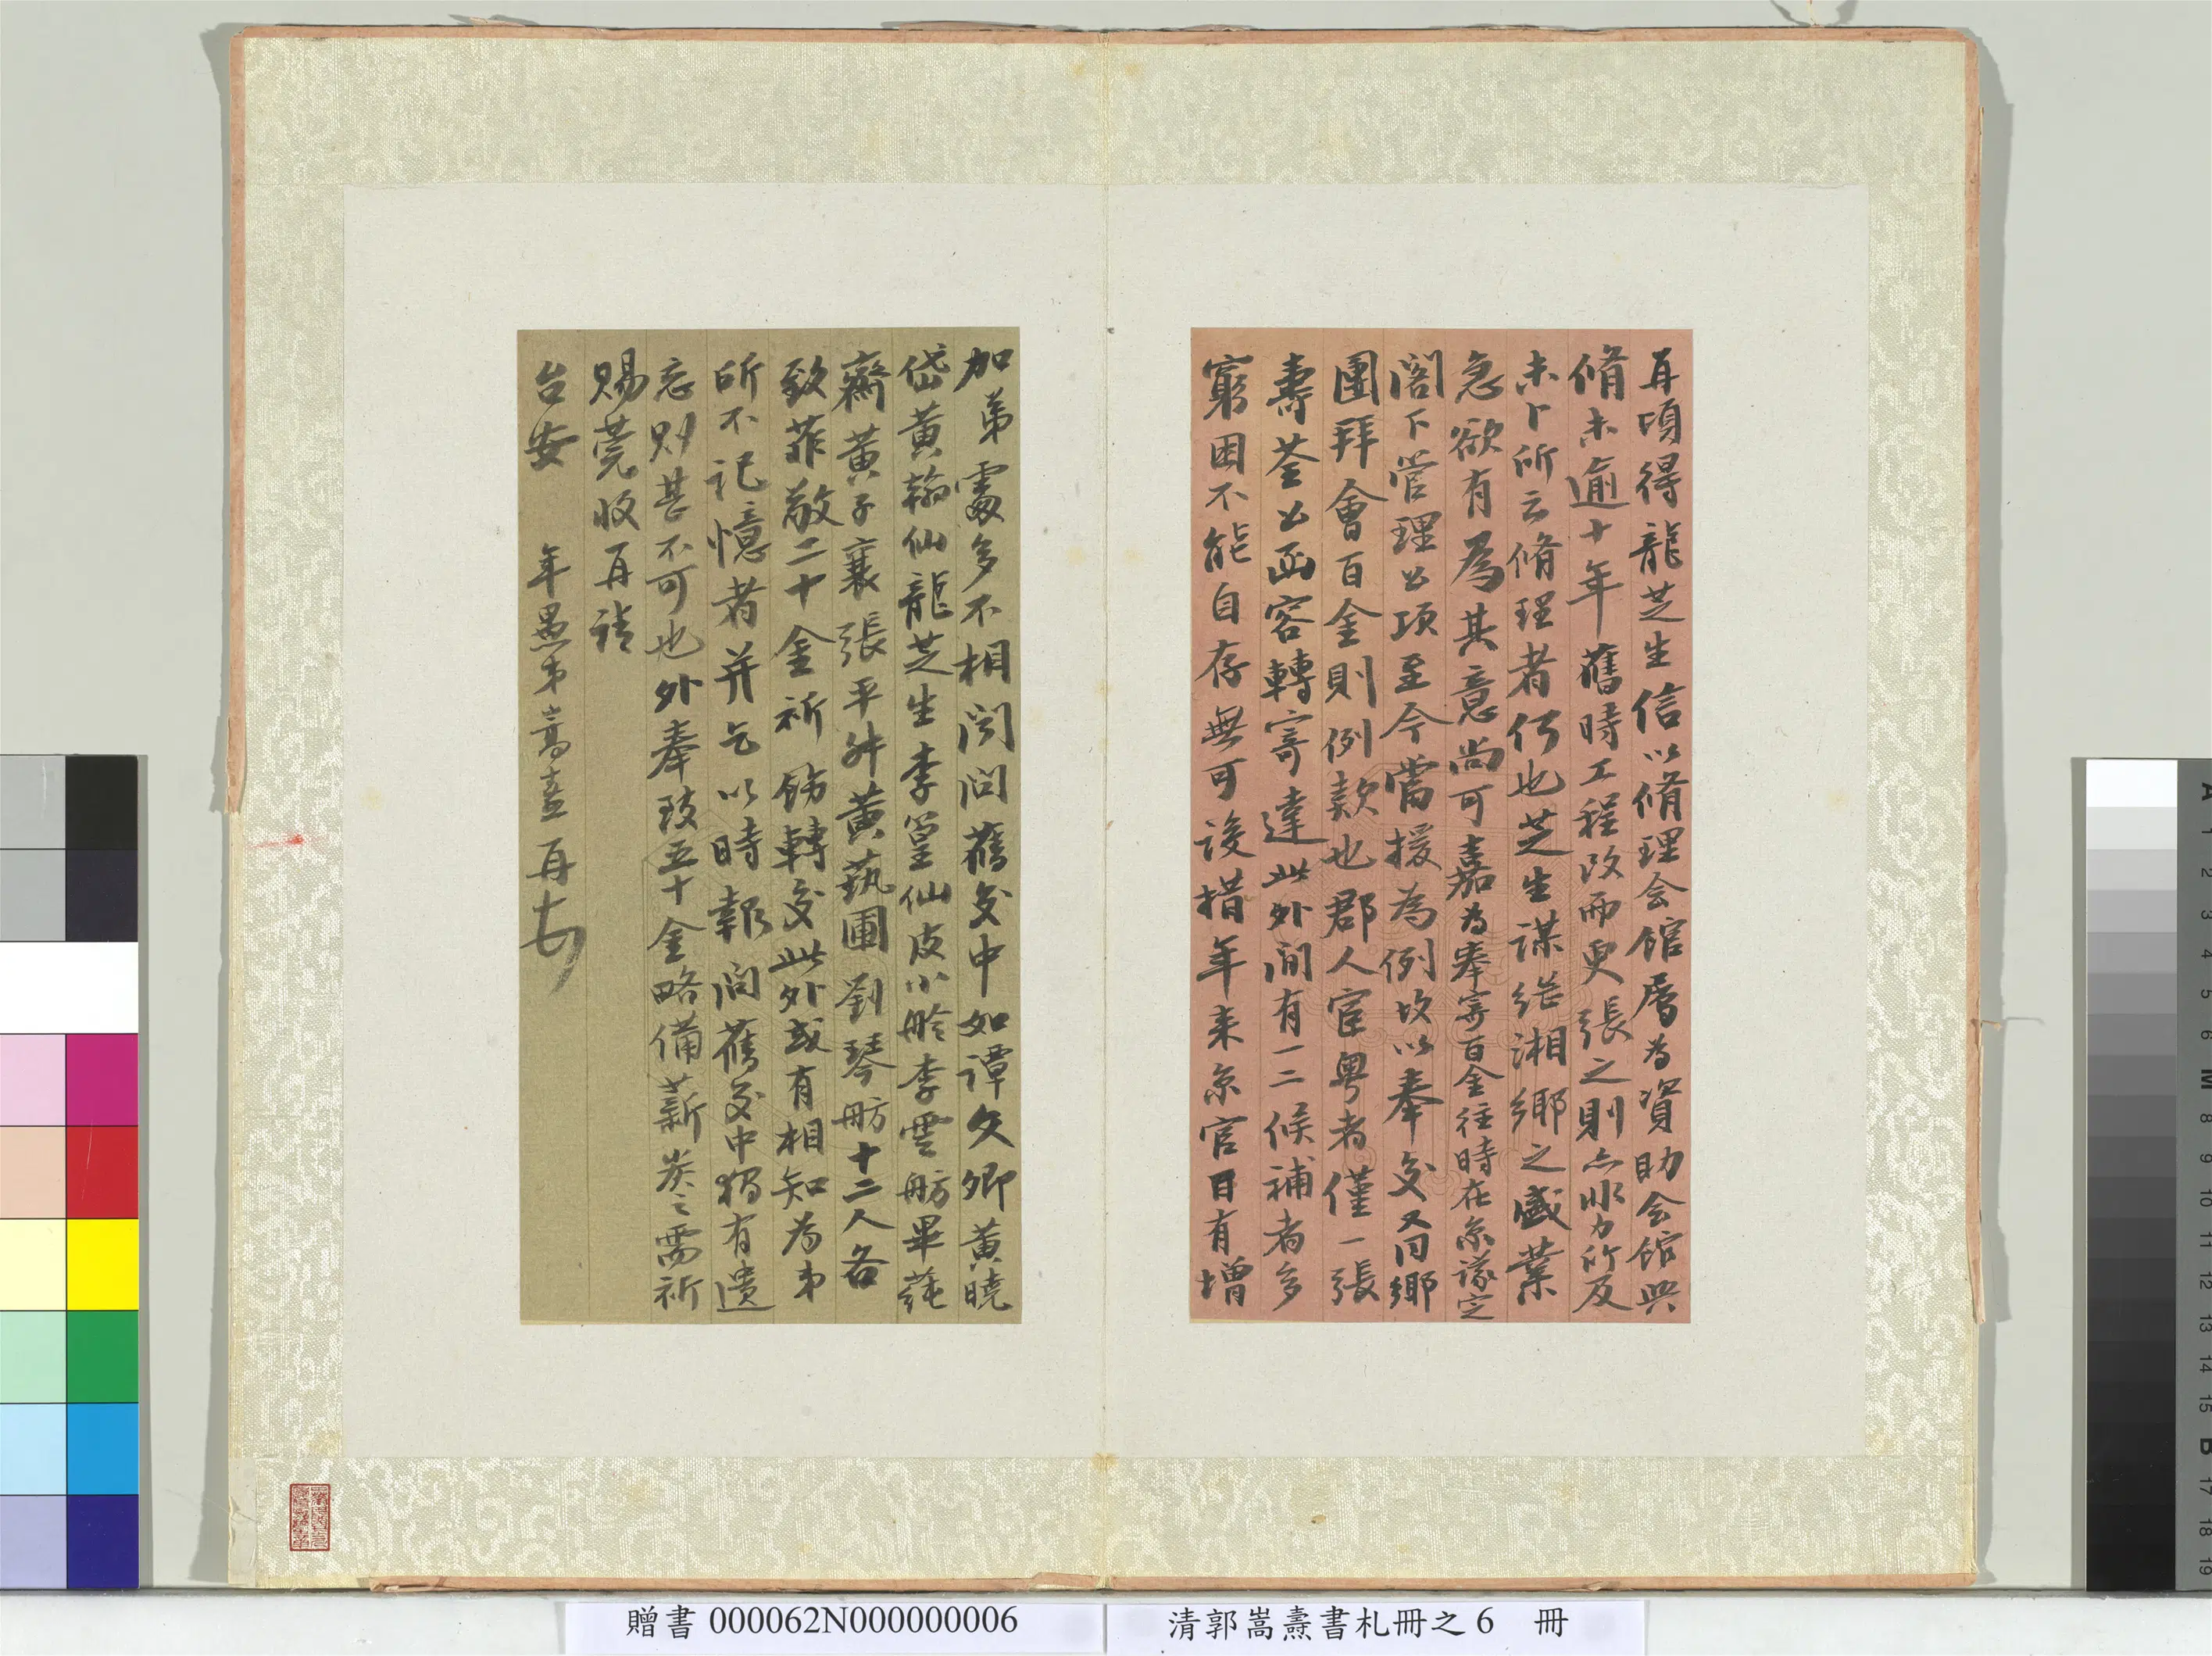 再頃得龍芝生信以脩理会館屬為資助会館興
脩未逾十年舊時工程改而更張之則亦非力所及
未卜所云脩理者何也芝生謀繼湘鄉之盛業
急欲有為其意尚可嘉為奉寄百金往時在京議定
閤下管理公項至今當援為例故以奉交又同鄉
團拜會百金則例款也郡人宦粵者僅一張
壽荃公函容轉寄達此外間有一二候補者多
窮困不能自存無可設措年来京官日有增
加弟處多不相聞問舊交中如譚文卿黃曉
岱黃翰仙龍芝生李篁仙皮小舲李雲舫畢蓴
齋黃子襄張平舛黃蓺圃劉琴舫十二人各
致菲敬二十金祈飭轉交此外或有相知為弟
所不記憶者并乞以時報聞舊交中獨有遺
忘則甚不可也外奉致五十金略備薪炭之需祈
賜莞收再請
台安 年愚弟嵩燾再頓
贈書 000062N000000006
清郭嵩燾書札冊之 6 冊
A 1 2 3 4 5 6 M 8 9 10 11 12 13 14 15 B 17 18 19